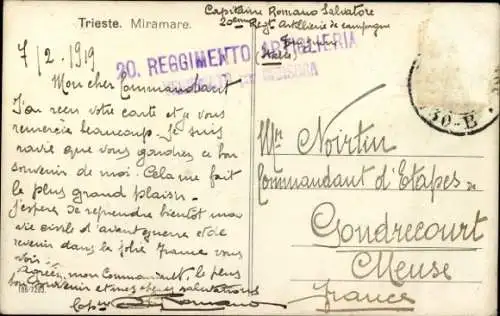 Trieste. Miramare.
Capitaine Romano Salvatore
20eme Regt Artillerie de campagne
(Italie)
20. REGGIMENTO ARTIGLIERIA
7/2 1919
Mon cher Commandant
J'ai reçu votre carte et je vous
remercie beaucoup. Je suis
ravie que vous gardiez ce bon
souvenir de moi. Cela me fait
le plus grand plaisir.
J'espère de reprendre bientôt ma
vie civile d'avant guerre et de
revenir dans la jolie France vous
voir.
Agréez, mon Commandant, le plus
bon souvenir et mes salutations
Cap. Romano
Mr Noirtin
Commandant d'Etapes de
Gondrecourt
Meuse
France
30-B